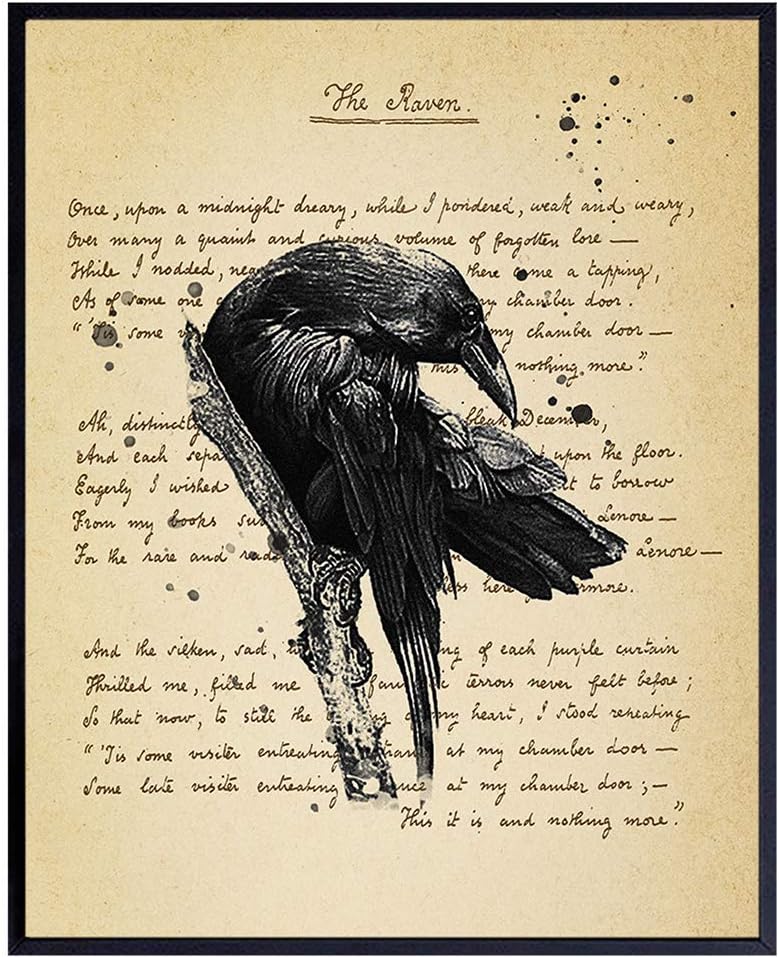 The Raven.
Once, upon a midnight dreary, while I pondered, weak and weary,
Over many a quaint and curious volume of forgotten lore —
While I nodded, here came a tapping,
As of some one my chamber door.
"'Tis some my chamber door —
nothing more."
Ah, distinctly bleak December,
And each upon the floor.
Eagerly I wished to borrow
From my books Lenore —
For the rare and Lenore —
here
And the silken, sad, of each purple curtain
Thrilled me, filled me terrors never felt before;
So that now, to still the my heart, I stood repeating
"'Tis some visiter entreating at my chamber door —
Some late visiter entreating at my chamber door; —
This it is and nothing more."